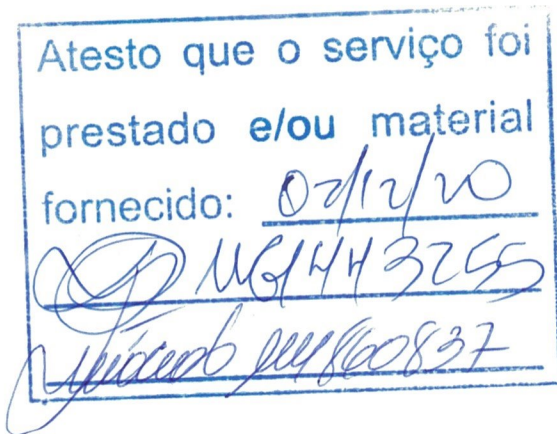 Atesto que o serviço foi
prestado e/ou material
fornecido: 02/12/20
MG1443255
860837